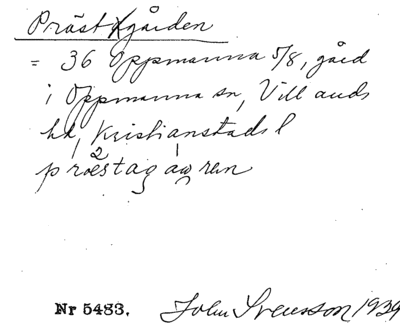 Prästgården
= 36 Oppmanna 5/8, gård
i Oppmanna sn, Villands
hd, Kristianstads l
prœstagå ren
Nr 5483. John Svensson 1934